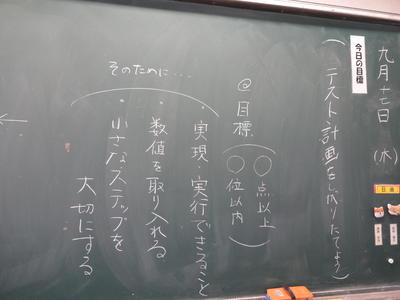 九月十二日(水)
日直
今日の目標
(テスト計画をしっかりたてよう)
◎目標(○点以上
○位以内)
そのために…
・実現・実行できること
・数値を取り入れる
・小さなステップを
大切にする